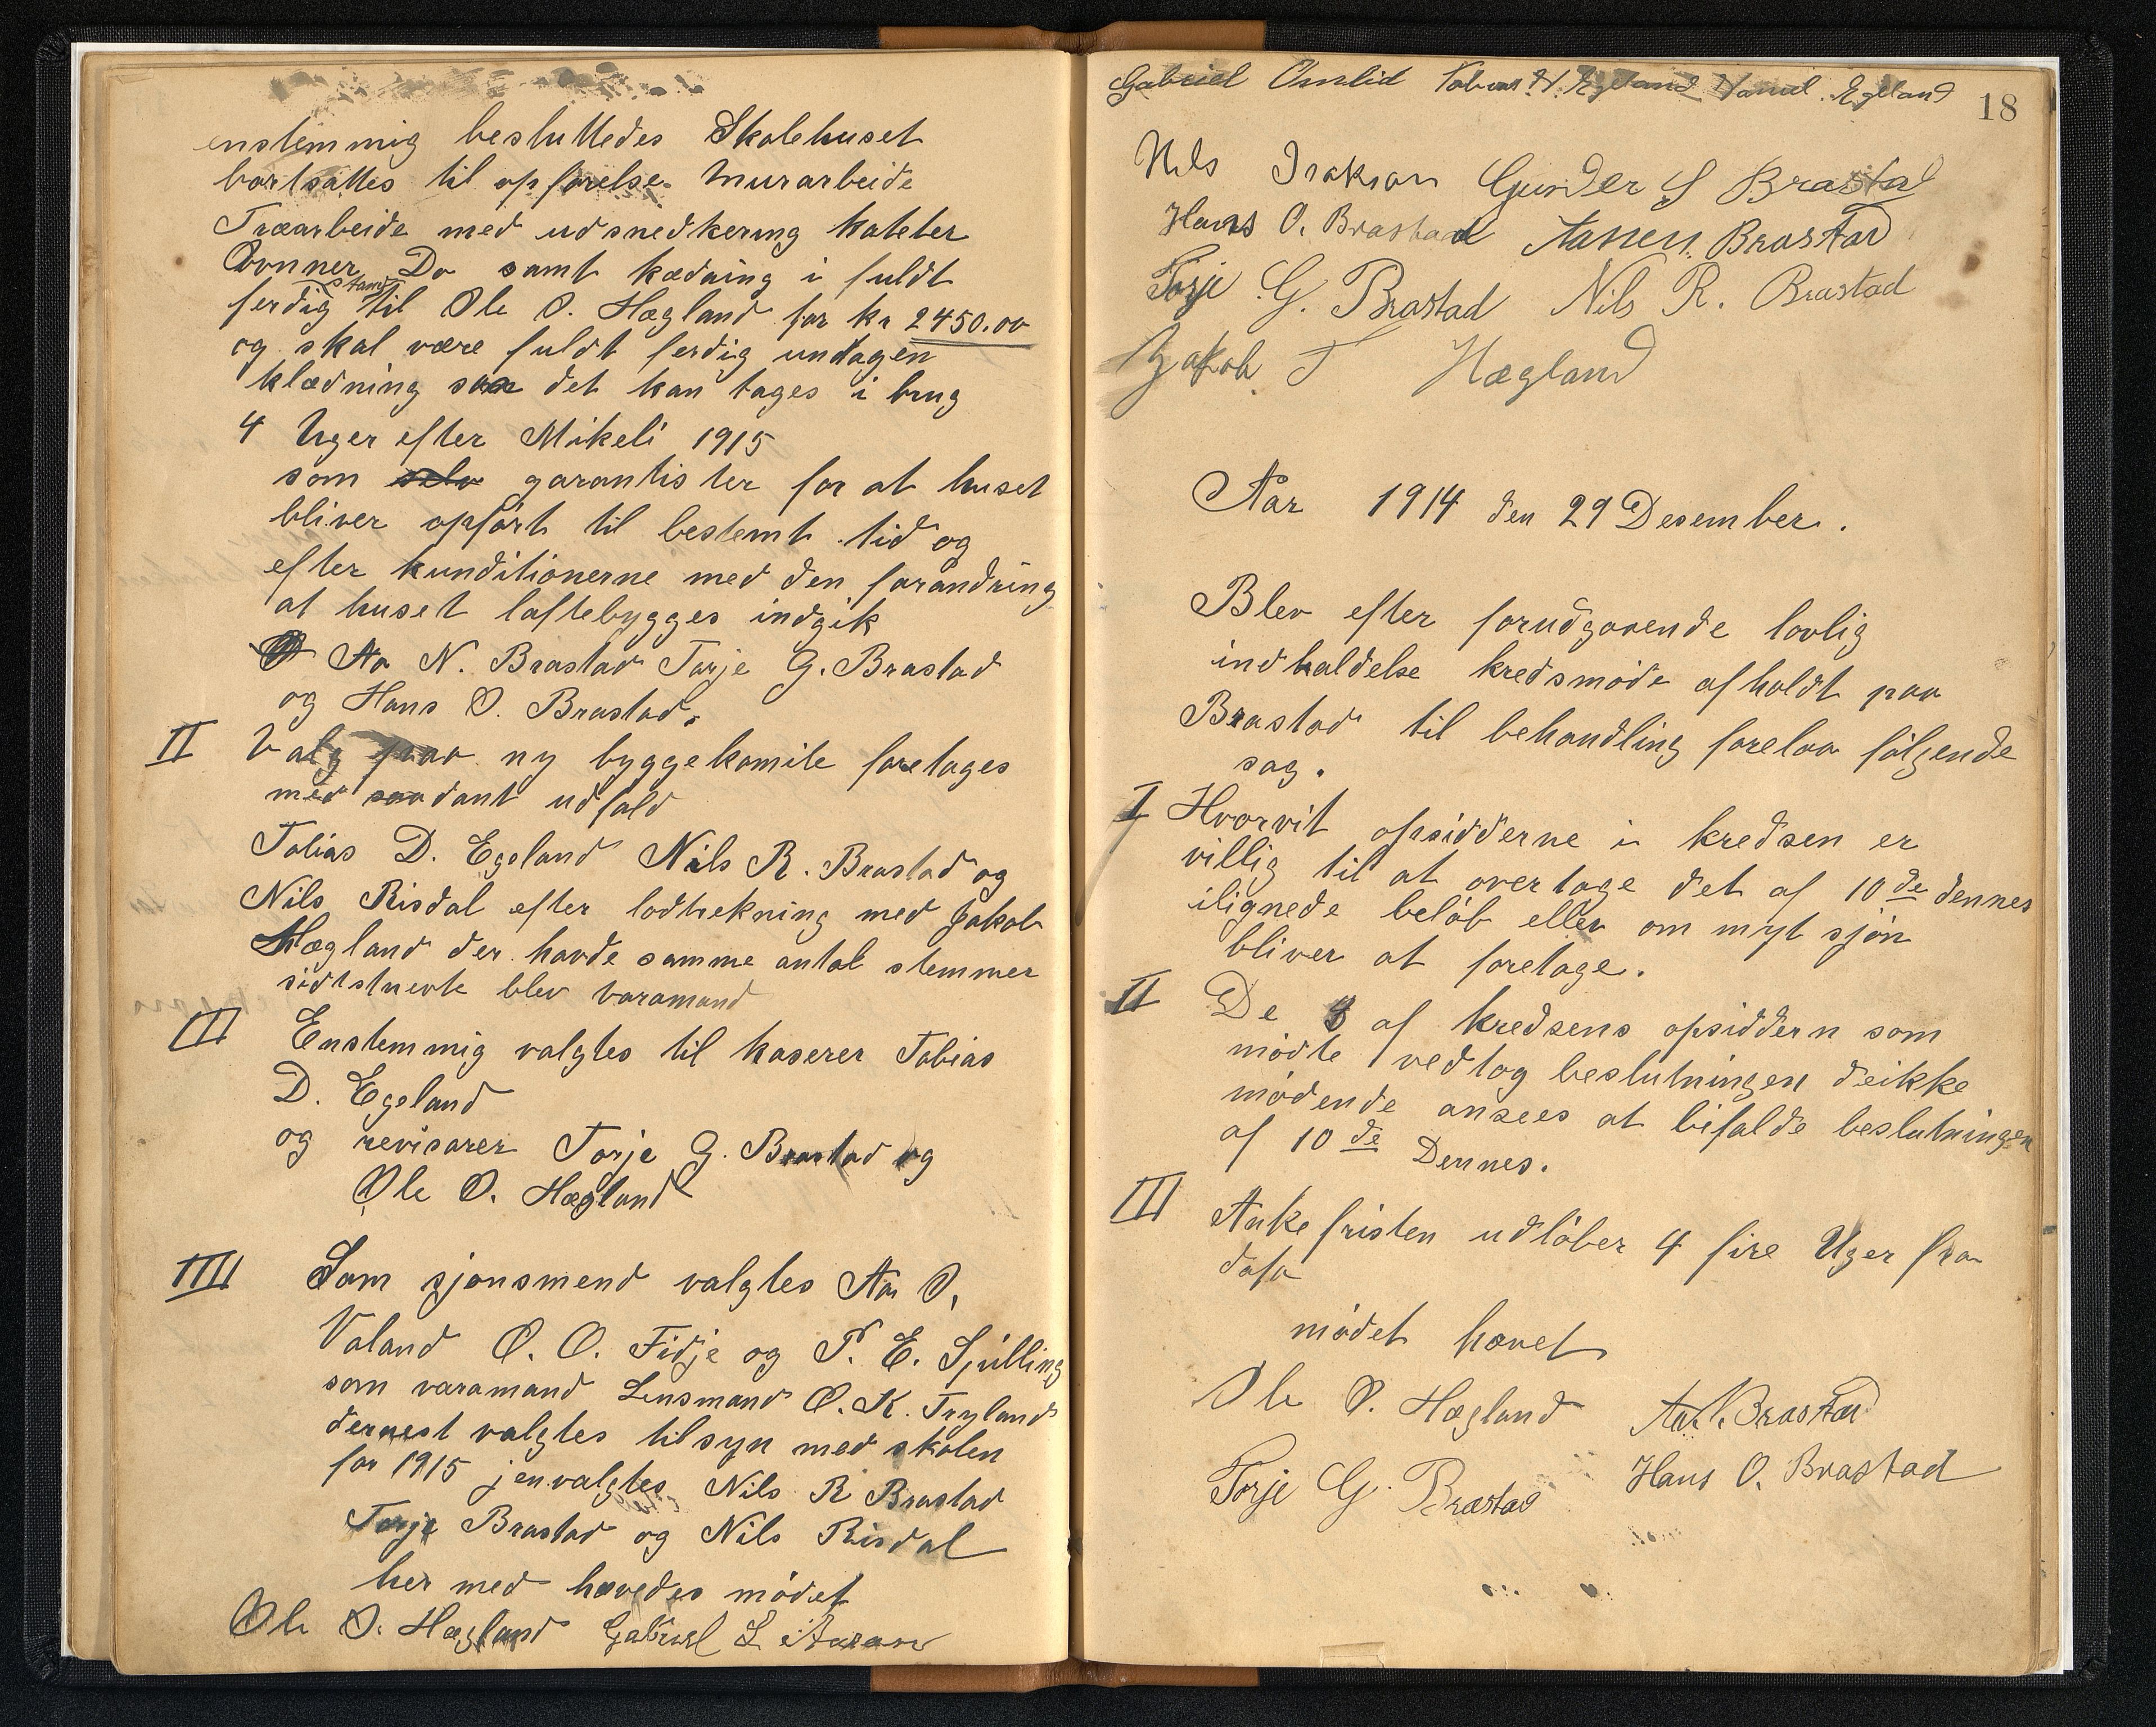 enstemmig besluttedes Skolehuset
bortsattes til opførelse. Murarbeide
Træarbeide med udsnedkering kateter
Ovnner Do samt kædning i fuldt
ferdig stand til Ole O. Hægland for kr 2450.00
og skal være fuldt ferdig undtagen
klædning saa det kan tages i brug
4 Uger efter Mikeli 1915
som selv garantister for at huset
bliver opført til bestemt tid og
efter kunditionerne med den forandring
at huset laftebygges indgik
Aa N. Brastad Torje G. Brastad
og Hans O. Brastad.
II Valg paa ny byggekomite foretages
med saadant udfald
Tobias D. Egeland Nils R. Brastad og
Nils Risdal efter lodtrekning med Jakob
Hægland der havde samme antal stemmer
sidtstnevte blev varamand
III Enstemmig valgtes til kaserer Tobias
D. Egeland
og revisorer Torje G. Brastad og
Ole O. Hægland
IIII Som sjønsmend valgtes Aa O.
Valand O. O. Fidje og P. E. Spilling
som varamand Lensmand O. K. Tryland
dernest valgtes tilsyn med skolen
for 1915 jenvalgtes Nils R Brastad
Torje Brastad og Nils Risdal
her med hævedes mödet
Ole O. Hægland Gabriel
18
Gabriel Omlid Tobias Egeland Daniel Egeland
Nils Isaksen Gunder S Brastad
Hans O. Brastad Aanen Brastad
Torje G. Brastad Nils R. Brastad
Jakob T Hægland
Aar 1914 den 29 Desember.
Blev efter forudgaaende lovlig
indkaldelse kredsmöde afholdt paa
Brastad til behandling forelaa fölgende
sag.
I Hvorvit opsidderne i kredsen er
villig til at overtage det af 10de dennes
ilignede belöb eller om nyt sjön
bliver at foretage.
II De 8 af kredsens opsiddern som
mödte vedtog beslutningen de ikke
mödende ansees at bifalde beslutningen
af 10de Dennes.
III Ankefristen udlöber 4 fire Uger fra
dato
mödet hævet
Ole O. Hægland Aa N. Brastad
Torje G. Brastad Hans O. Brastad